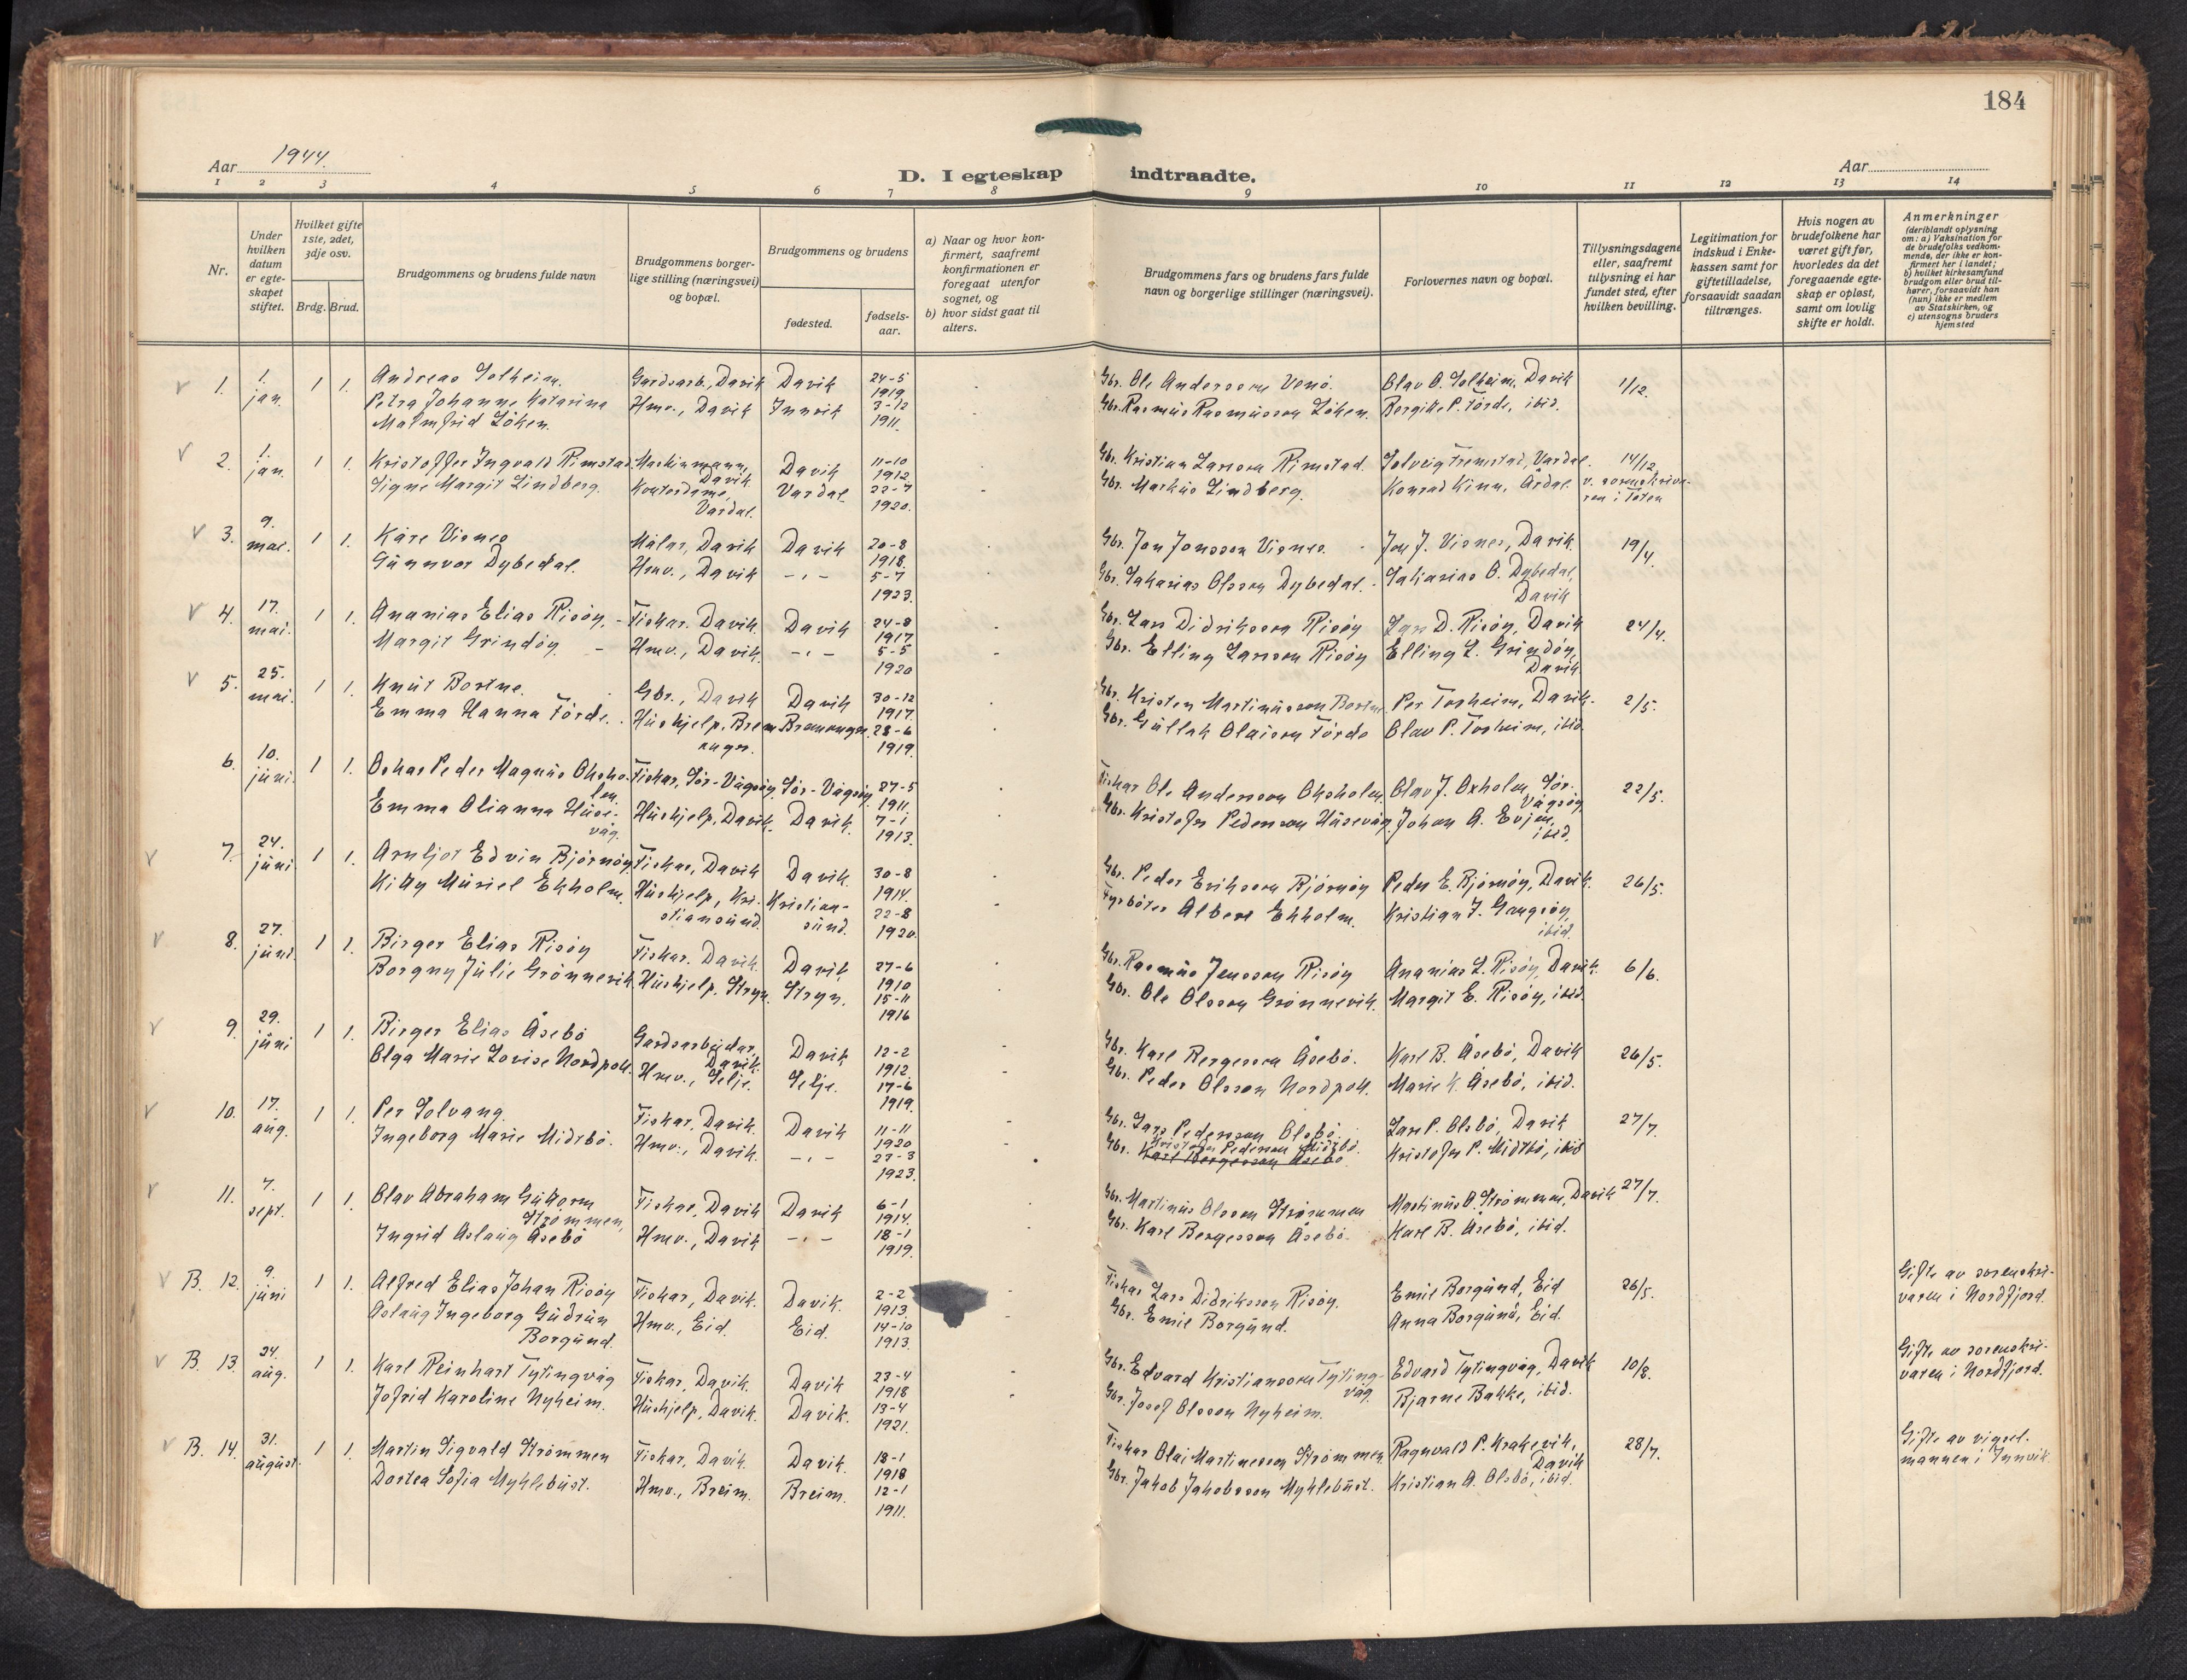 184
Aar 1944.
D. I egteskap indtraadte.
Aar
1 2 3 4 5 6 7 8 9 10 11 12 13 14
Nr.
Under hvilken datum er egteskapet stiftet.
Hvilket gifte 1ste, 2det, 3dje osv.
Brdg. Brud.
Brudgommens og brudens fulde navn
Brudgommens borgerlige stilling (næringsvei) og bopæl.
Brudgommens og brudens
fødested.
fødselsaar.
a) Naar og hvor konfirmert, saafremt konfirmationen er foregaat utenfor sognet, og
b) hvor sidst gaat til alters.
Brudgommens fars og brudens fars fulde navn og borgerlige stillinger (næringsvei).
Forlovernes navn og bopæl.
Tillysningsdagene eller, saafremt tillysning ei har fundet sted, efter hvilken bevilling.
Legitimation for indskud i Enkekassen samt for giftetilladelse, forsaavidt saadan tiltrænges.
Hvis nogen av brudefolkene har været gift før, hvorledes da det foregaaende egteskap er opløst, samt om lovlig skifte er holdt.
Anmerkninger (deriblandt oplysning om: a) Vaksination for de brudefolks vedkommende, der ikke er konfirmert her i landet; b) hvilket kirkesamfund brudgom eller brud tilhører, forsaavidt han (hun) ikke er medlem av Statskirken, og c) utensogns bruders hjemsted
1. 1. jan. 1 1. Andreas Solheim. Gardsarb., Davik Davik 24-5 1919 Gbr. Ole Andersson Venö. Olav O. Solheim, Davik 1/12.
Petra Johanne Katarina Malmfrid Löken. Hmv., Davik Innvik 3-12 1911. Gbr. Rasmus Rasmusson Löken. Borgitte P. Förde, ibid.
2. 1. jan. 1 1. Kristoffer Ingvald Rimstad. Maskinmann, Davik Davik 11-10 1912 Gbr. Kristian Larsson Rimstad. Solveig Fremstad, Vardal. 14/12 v. sorenskrivaren i Toten
Signe Margit Lindberg. Kontordame, Vardal. Vardal 22-7 1920. Gbr. Markus Lindberg. Konrad Kinn, Årdal
3. 9. mai. 1 1. Kåre Visnes Målar, Davik Davik 20-8 1918. Gbr. Jon Jonsson Visnes. Jon J. Visnes, Davik. 19/4.
Gunnvor Dybedal. Hmv., Davik -"- 5-7 1923. Gbr. Sakarias Olsson Dybedal. Sakarias O. Dybedal, Davik
4. 17. mai. 1 1. Ananias Elias Risöy. Fiskar. Davik. Davik 24-8 1917 Gbr. Lars Didriksson Risöy Lars D. Risöy, Davik 24/4.
Margit Grindöy. Hmv., Davik. -"- 5-5 1920 Gbr. Elling Larsson Risöy Elling L. Grindöy, Davik
5. 25. mai. 1 1. Knut Bortne. Gbr., Davik Davik 30-12 1917. Gbr. Kristen Martinusson Bortne. Per Torheim, Davik. 2/5.
Emma Hanna Förde. Hushjelp, Bremanger. Bremanger. 28-6 1919. Gbr. Gullak Olaisson Förde Olav P. Torheim, ibid.
6. 10. juni. 1 1. Oskar Peder Magnus Oksholm. Fiskar, Sör-Vågsöy. Sör-Vågsöy. 27-5 1911. Fiskar Ole Andersson Oksholm. Olav J. Oxholm, Sör-Vågsöy 22/5.
Emma Olianna Husevåg. Hushjelp, Davik. Davik. 7-1 1913. Gbr. Kristofer Pedersson Husevåg. Johan A. Evjen, ibid.
7. 24. juni 1 1. Arnljot Edvin Bjørnöy Fiskar, Davik Davik. 30-8 1914. Gbr. Peder Eriksson Bjørnöy Peder E. Bjørnöy, Davik. 26/5.
Kitty Muriel Ekholm. Hushjelp, Kristiansund. Kristiansund. 22-8 1920. Fyrböter Albert Ekholm. Kristian J. Gangsöy, ibid.
8. 27. juni. 1 1. Birger Elias Risöy Fiskar. Davik. Davik 27-6 1910 Gbr. Rasmus Jensson Risöy Ananias L. Risöy, Davik. 6/6.
Borgny Julie Grönnevik. Hushjelp. Stryn. Stryn. 15-11 1916 Gbr. Ole Olsson Grönnevik. Margit E. Risöy, ibid.
9. 29. juni 1 1. Birger Elias Åsebö Gardsarbeidar, Davik. Davik 12-2 1912. Gbr. Karl Bergesson Åsebö. Karl B. Åsebö, Davik 26/5.
Olga Marie Lovise Nordpoll. Hmv., Selje. Selje. 17-6 1919. Gbr. Peder Olsson Nordpoll. Marie K. Åsebö, ibid.
10. 17. aug. 1 1. Per Solvang. Fiskar, Davik. Davik 11-11 1920 Gbr. Lars Pedersson Olsbö. Lars P. Olsbö, Davik 27/7.
Ingeborg Marie Midtbö. Hmv., Davik. -"- 27-3 1923. Gbr. Kristofer Pedersson Midtbö. Karl Bergesson Åsebö. Kristofer P. Midtbö, ibid
11. 7. sept. 1 1. Olav Abraham Guttorm Strömmen, Fiskar, Davik Davik 6-1 1914. Gbr. Martinus Olsson Strömmen Martinus O. Strömmen, Davik 27/7.
Ingrid Aslaug Åsebö Hmv., Davik -"- 18-1 1919. Gbr. Karl Bergesson Åsebö. Karl B. Åsebö, ibid.
B. 12. 9. juni 1 1. Alfred Elias Johan Risöy Fiskar, Davik. Davik. 2-2 1913. Fiskar Lars Didriksson Risöy. Emil Borgund, Eid 26/5. Gifte av sorenskrivaren i Nordfjord.
Aslaug Ingeborg Gudrun Borgund. Hmv., Eid. Eid. 14-10 1913. Gbr. Emil Borgund. Anna Borgund, Eid.
B. 13. 24. aug. 1 1. Karl Reinhart Tytingvåg Fiskar, Davik. Davik 23-4 1918 Gbr. Edvard Kristiansson Tytingvåg Edvard Tytingvåg, Davik 10/8. Gifte av sorenskrivaren i Nordfjord.
Jofrid Karoline Nyheim. Hushjelp, Davik. Davik. 13-4 1921. Gbr. Josef Olsson Nyheim. Bjarne Bakke, ibid.
B. 14. 31. august. 1 1. Martin Sigvald Strömmen Fiskar, Davik. Davik. 18-1 1918 Fiskar Olai Martinesson Strömmen Ragnvald P. Krakevik, Davik 28/7. Gifte av vigselmannen i Innvik.
Dortea Sofia Myklebust. Hmv., Breim. Breim. 12-1 1911. Gbr. Jakob Jakobsson Myklebust. Kristian A. Olsbö, ibid.